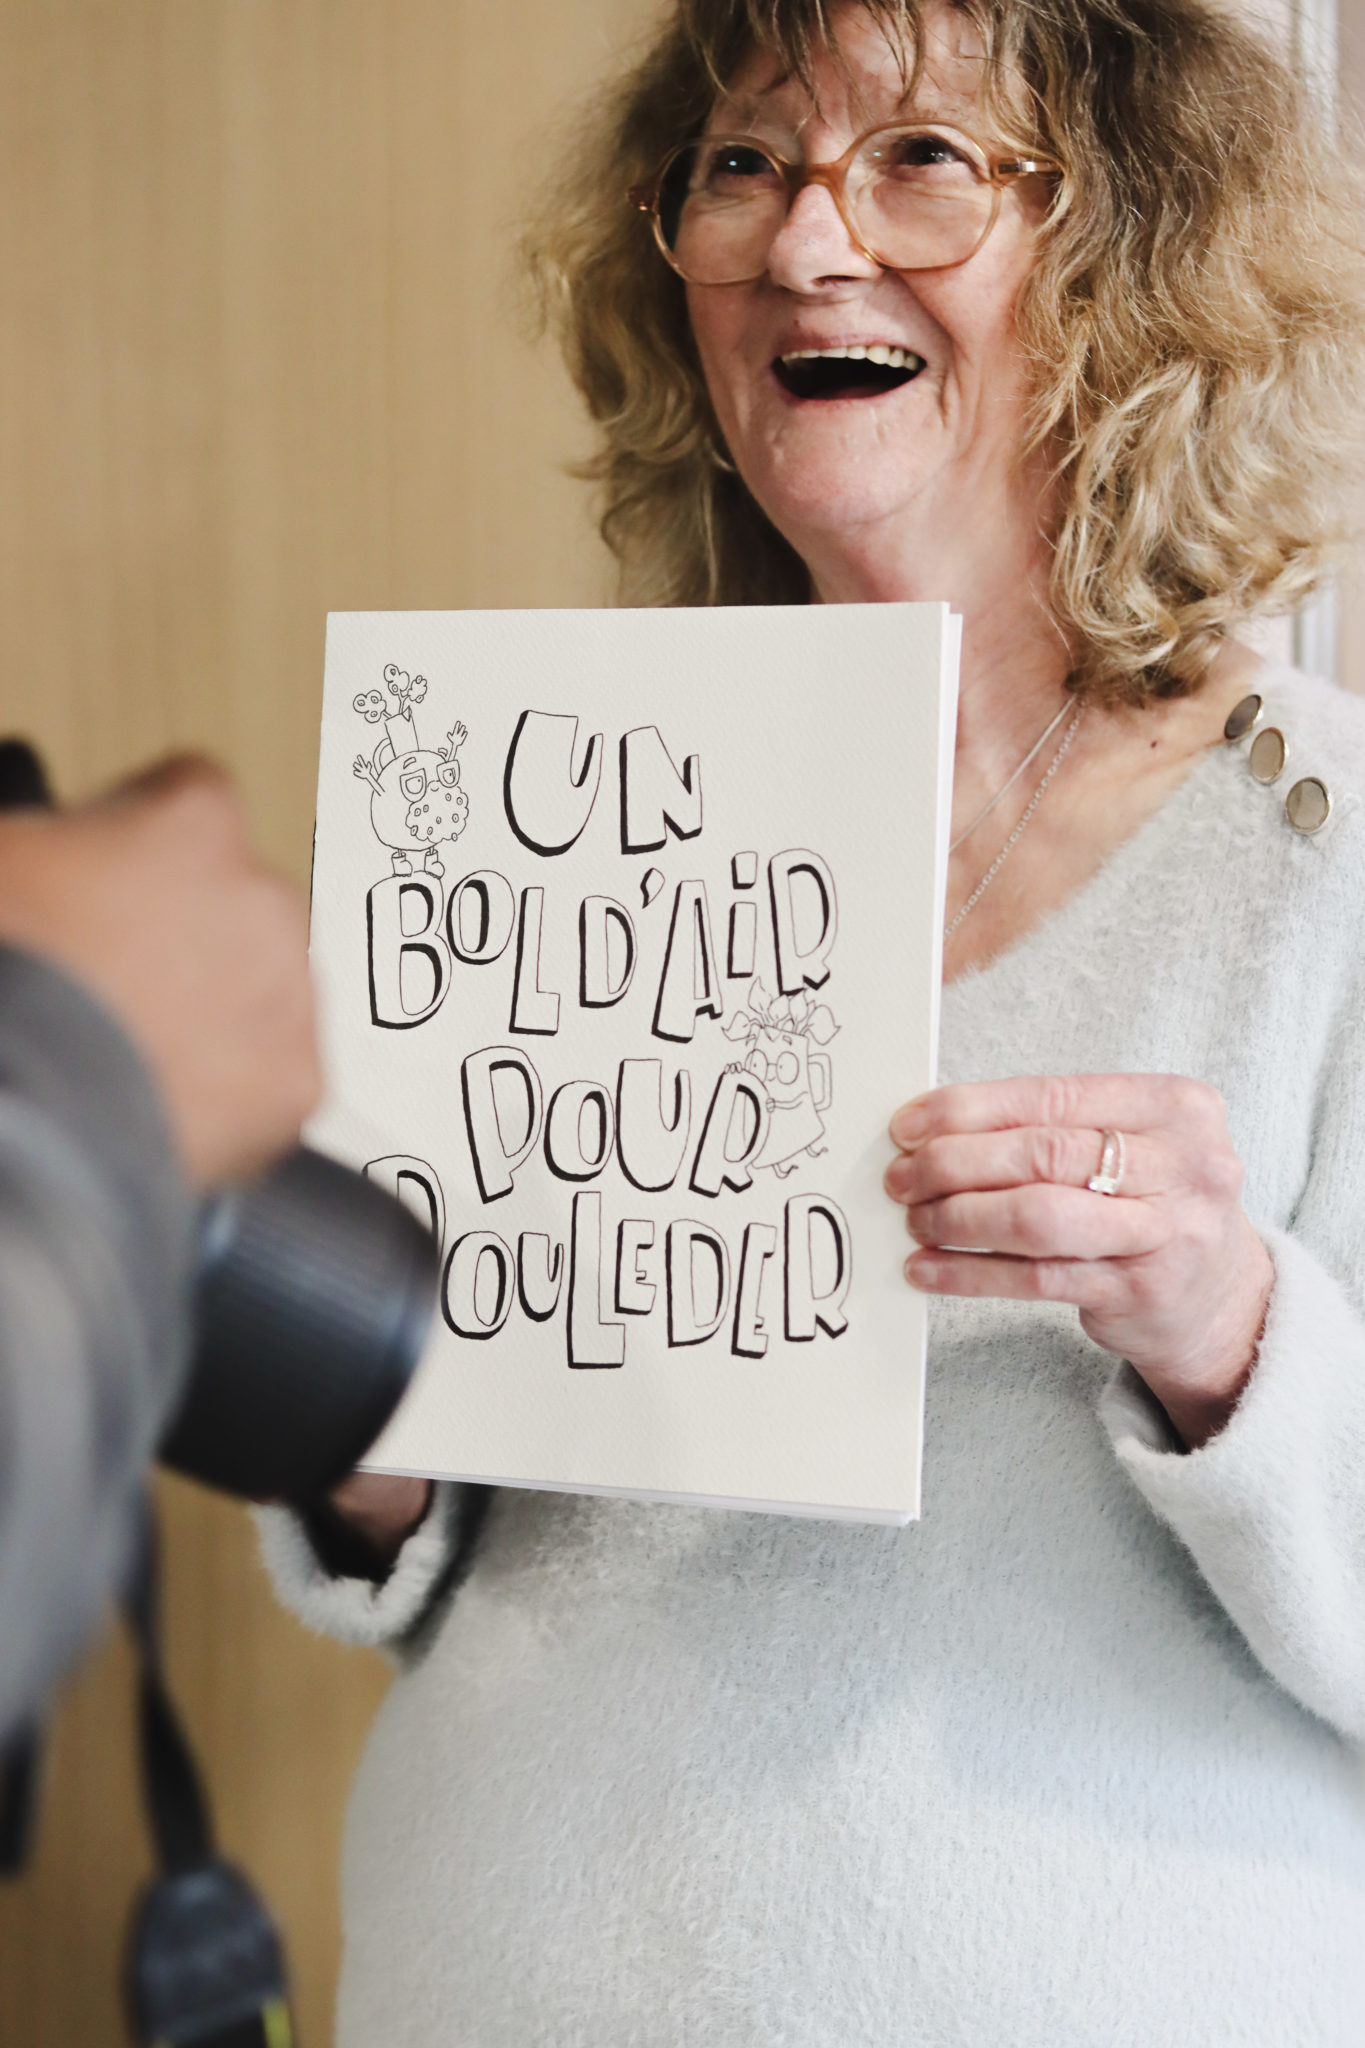 UN
BOL D'AIR
POUR
OULEDER